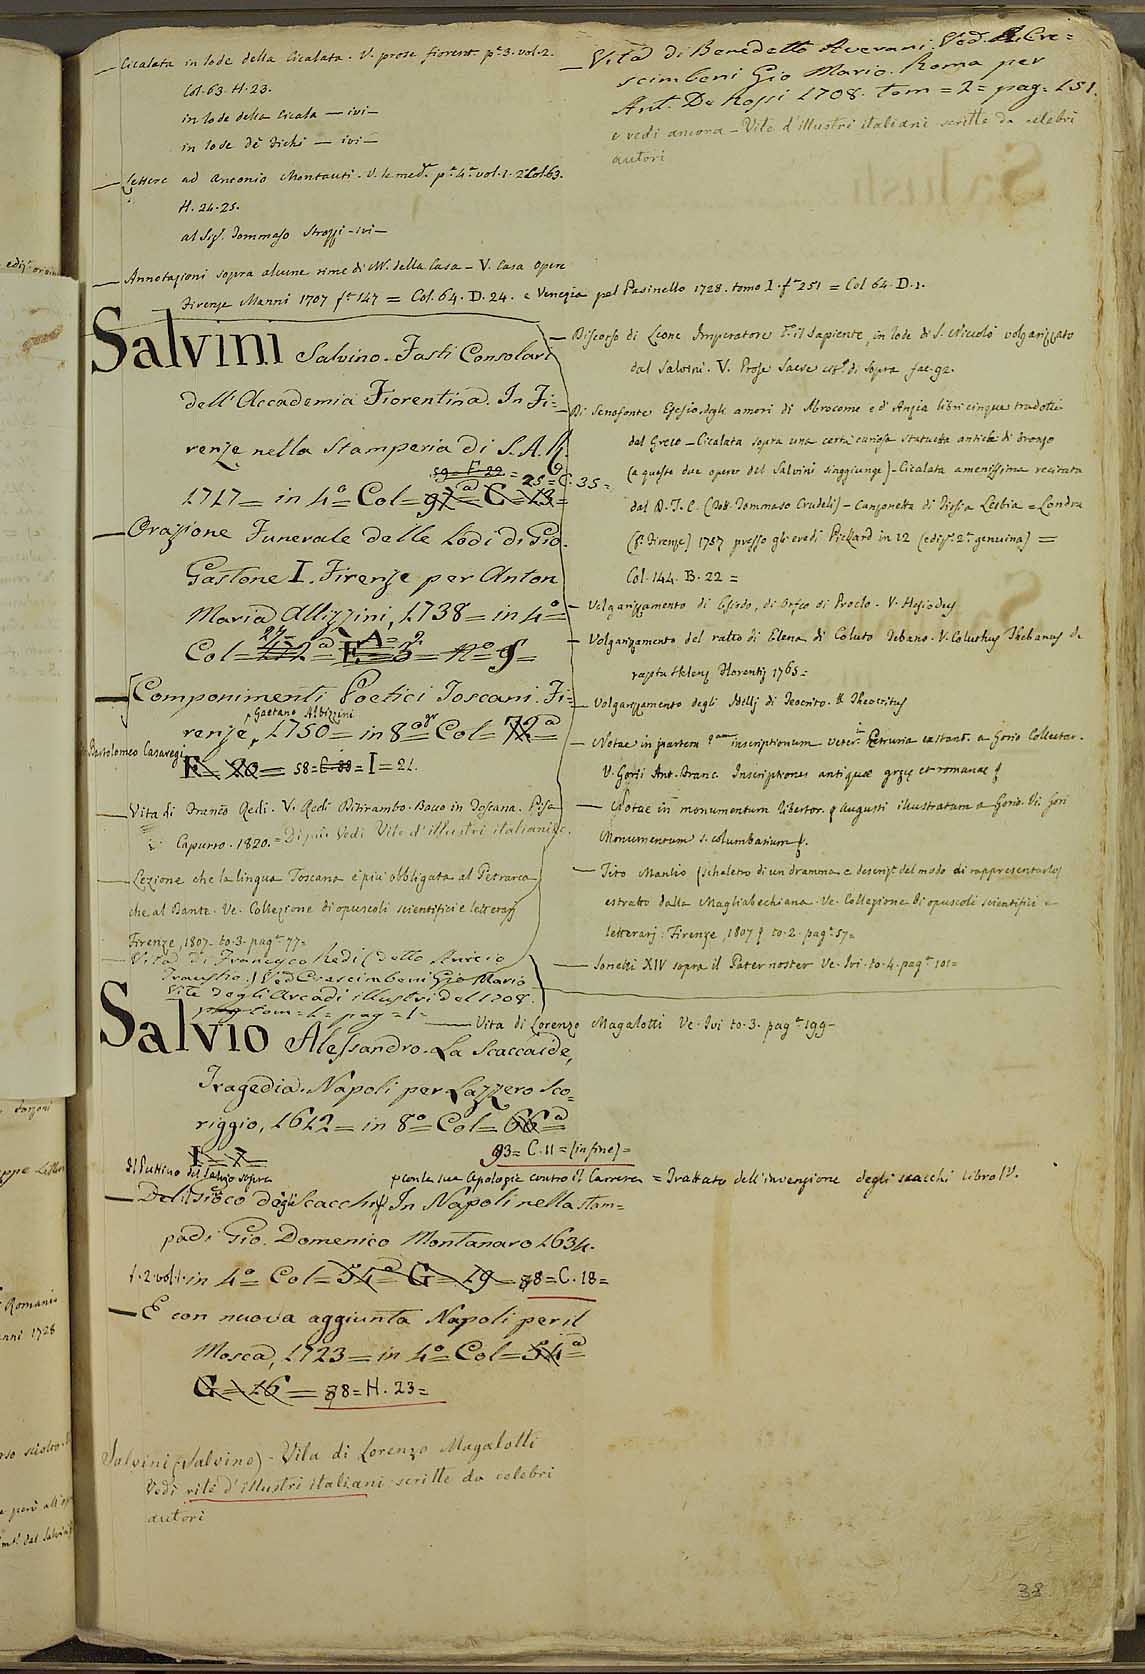 — Cicalata in lode della Cicalata. V. prose fiorent. p.e 3. vol. 2.
Col. 63. H. 23.
in lode della Cicala — ivi —
in lode de' Fichi — ivi —
— Lettere ad Antonio Montauti. V. le med.e p.e 4.a vol. 1. 2. Col. 63.
H. 24. 25.
al Sig.r Tommaso Strozzi - ivi —
— Annotazioni sopra alcune rime di M. della Casa — V. Casa Opere
Firenze Manni 1707 f.e 147 = Col. 64. D. 24. e Venezia pel Pasinello 1728. tomo I. f.e 251 = Col 64. D. 1.
— Vita di Benedetto Averani. Ved. Cre=
scimbeni Gio Mario. Roma per
Ant. De Rossi 1708. tom = 2 = pag. 151.
e vedi ancora — Vite d'illustri italiani scritte da celebri
autori
Salvini Salvino. Fasti Consolari
dell'Accademia Fiorentina. In Fi=
renze nella Stamperia di S. A. R.
59 = F. 22 = 25 = C. 35 =
1717 = in 4.o Col = 97.a C = 13 =
— Orazione Funerale delle Lodi di Gio.
Gastone I. Firenze per Anton
Maria Albizzini, 1738 = in 4.o =
Col =
— Componimenti Poetici Toscani. Fi=
Gaetano Albizzini
renze, 1750 = in 8.o gr Col = 72.a
Bartolomeo Casaregi
F. 20 = 58 = C. 80 = I = 21.
— Vita di Franco Redi. V. Redi Ditirambo. Bacco in Toscana. Pisa
Capurro. 1820. = Di più Vedi Vite d'illustri italiani
— Lezione che la lingua Toscana è più obbligata al Petrarca
che al Dante. Ve. Collezione di opuscoli scientifici e letterarj
Firenze, 1807. to. 3. pag.e 77 =
— Vita di Francesco Redi (detto Anicio
Traustio.) Ved Crescimbeni Gio Mario
Vite degli Arcadi illustri del 1708.
tom = 1 = pag = 1 =
— Discorso di Leone Imperatore d.o il Sapiente in lode di S. Niccolò volgarizzato
dal Salvini. V. Prose Sacre di sopra fac. 92.
— Di Senofonte Efesio, degli amori di Abrocome e d'Anzia libri cinque tradotti
dal Greco — Cicalata sopra una certa curiosa statuetta antica di bronzo
(a queste due opere del Salvini singgiunge) - Cicalata amenissima recitata
dal D. T. C. (Dot. Tommaso Crudeli) — Canzonetta di Lesbia = Londra
(Firenze) 1757 presso gli eredi Pickard in 12 (ediz.e 2.a genuina) =
Col. 144. B. 22 =
— Volgarizzamento di Esiodo, di Orfeo di Proclo. V. Hesiodus
— Volgarizzamento del ratto di Elena di Coluto Tebano. V. Coluthus Thebanus de
raptu Helenę Florentię 1765 =
— Volgarizzamento degli Idillj di Teocrito. Theocritus
— Notae in partem inscriptionum veter. in Etruria exstant. a Gorio Collectar.
V. Gorii Ant. Franc. Inscriptiones antiquae gręcę et romanae
— Notae in monumentum libertor. Augusti illustratum a Gorio. V. Gori
Monumentum s. columbarium
— Tito Manlio (scheletro di un dramma e descriz.e del modo di rappresentarlo)
estratto dalla Magliabechiana. Ve. Collezione di opuscoli scientifici e
letterarj: Firenze, 1807 to. 2. pag.e 57 =
— Sonetti XIV sopra il Pater noster Ve. Ivi. to. 4. pag.e 101 =
— Vita di Lorenzo Magalotti Ve. Ivi to. 3. pag.e 199 —
Salvio Alessandro. La Scaccaide,
Tragedia. Napoli per Lazzero Sco=
riggio, 1612 = in 8.o Col = 66.a
I = 7 = 93 = C. 11 = (in fine) =
Il Puttino del Salvio sopra
— Del gioco degli Scacchi In Napoli nella stam=
con la sua Apologia contro il Carrera = Trattato dell'invenzione degli scacchi libro IV.
pa di Gio. Domenico Montanaro 1634.
t. 2. vol. 1. in 4.o Col = 54.a G = 19 = 88 = C. 18 =
— E con nuova aggiunta Napoli per il
Mosca, 1723 = in 4.o Col = 54.a
G = 16 = 88 = H. 23 =
Salvini (Salvino) - Vita di Lorenzo Magalotti
Vedi vite d'illustri italiani scritte da celebri
autori
38